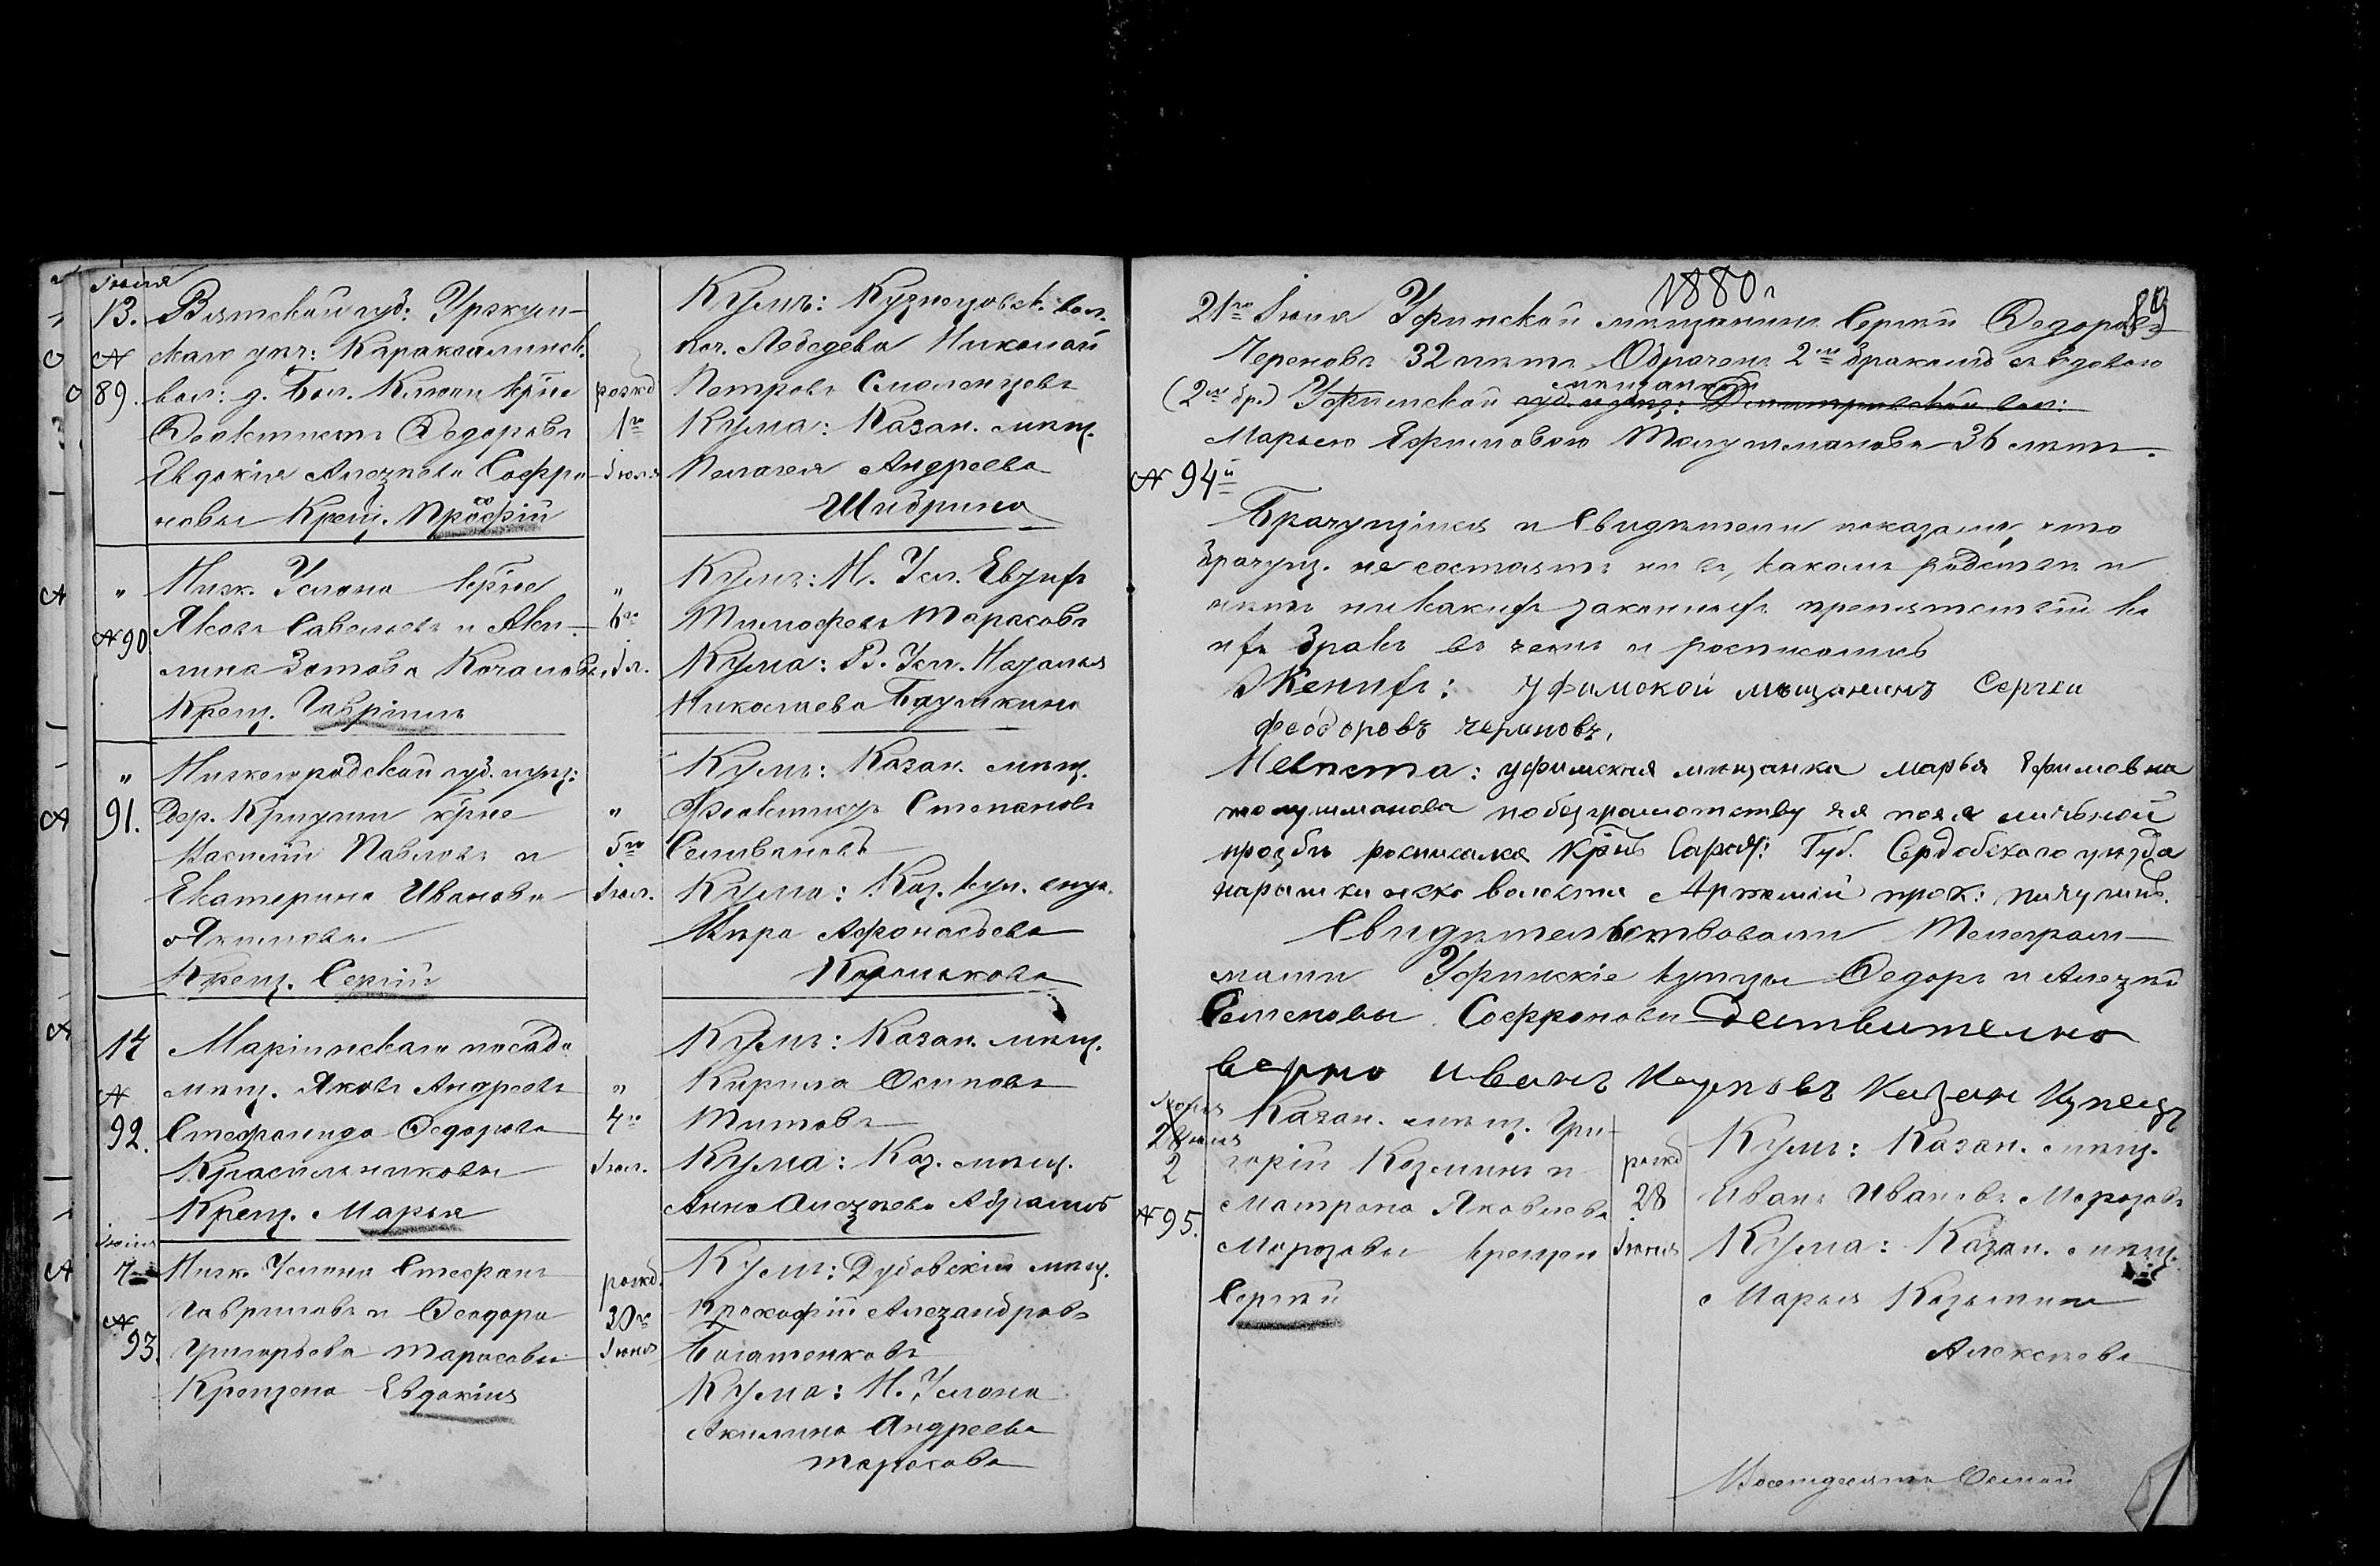 Іюля
13. Вятской губ: Уржум-
скаго уез: Кураксалинск.
№ 89. вол: д. Бол. Ключи кр-не
Феоктистъ Федоровъ
Евдокия Алезѣева Софро-
новы Крещ. Прокофій
рожд
1го
Іюля
Кумъ: Кузнецовск. вол.
поч. Лебедева Николай
Петровъ Смоленцовъ
Кума: Казан. мѣщ.
Пелагея Андреева
Шибрина
" Ниж. Услона кр-не
№ 90 Яковъ Савельевъ и Аку-
лина Зотова Качаловы
Крещ. Гавріилъ
"
6го
Іл.
Кумъ: Н. Усл. Евфи
Тимофеев Тарасовъ
Кума: В. Усл. Наталья
Николаева Баушкина
" Нижегородской губ. и уез:
91. Дер. Крицали кр-не
Василий Павловъ и
Екатерина Иванова
Якимовы
Крещ. Сергій
"
5го
Іюл.
Кумъ: Казан. мѣщ.
Феоктистъ Степановъ
Селивановъ
Кума: Каз. куп.
Вѣра Афонасьева
Карпикова
14 Маріинскаго посада
№ мѣщ. Яковъ Андреевъ
92. Стефанида Федорова
Красильниковы
Крещ. Марья
"
4го
Іюл.
Кумъ: Казан. мѣщ.
Кирила Осиповъ
Титовъ
Кума: Каз. мѣщ.
Анна Алезѣева Абрамов
Іюля
7 Ниж. Услона Стефанъ
№ Гавриловъ и Феодора
93. Григорьева Тарасовы
Крещена Евдокия
рожд.
30го
Іюня
Кумъ: Дубовскій мѣщ.
Прокофій Алезандровъ
Богатенковъ
Кума: Н. Услона
Акилина Андреева
Тарасова
1880г
89
21го Іюля Уфимской мещанинъ Сергей Федоровъ
Череновъ 32 летъ Обрачен. 2мъ бракомъ с вдовою
мещанкой
(2мъ бр.) Уфимской губ. и уез: Дмитриевской вол:
Марьею Ефимовою Толушманова 36 летъ.
№ 94й
Брачущіися и Свидетели показали, что
брачущ. не состоятъ ни в, каком родстве и
нетъ никакихъ законныхъ препятствій къ
ихъ браку въ чемъ и росписались
Женихъ: уфимской мещанинъ Сергеи
Феодоровъ череновъ,
Невѣста: уфимская мещанка марья Ефимовна
толушманова по безграмотству ея по ея личьной
прозбѣ росписался кр-нъ Сарат: Губ. Сердобского уезда
волости Артемий прох: пичугинъ.
Свидетельствовали Телеграм-
мами Уфимскіе купцы Федоръ и Алезѣй
Семеновы Софроновы Дествительно
верно иванъ Карповъ Казан Купецъ
Іюля
28
Июля
2
№ 95.
Казан. мѣщ. Гри-
горій Козминъ и
Матрона Яковлева
Морозовы крещен
Сергѣй
рожд
28
Іюня
Кумъ: Казан. мѣщ.
Иванъ Ивановъ Морозовъ
Кума: Казан. мѣщ.
Марья Козьмина
Алексеева
Восемдесятъ Осмой